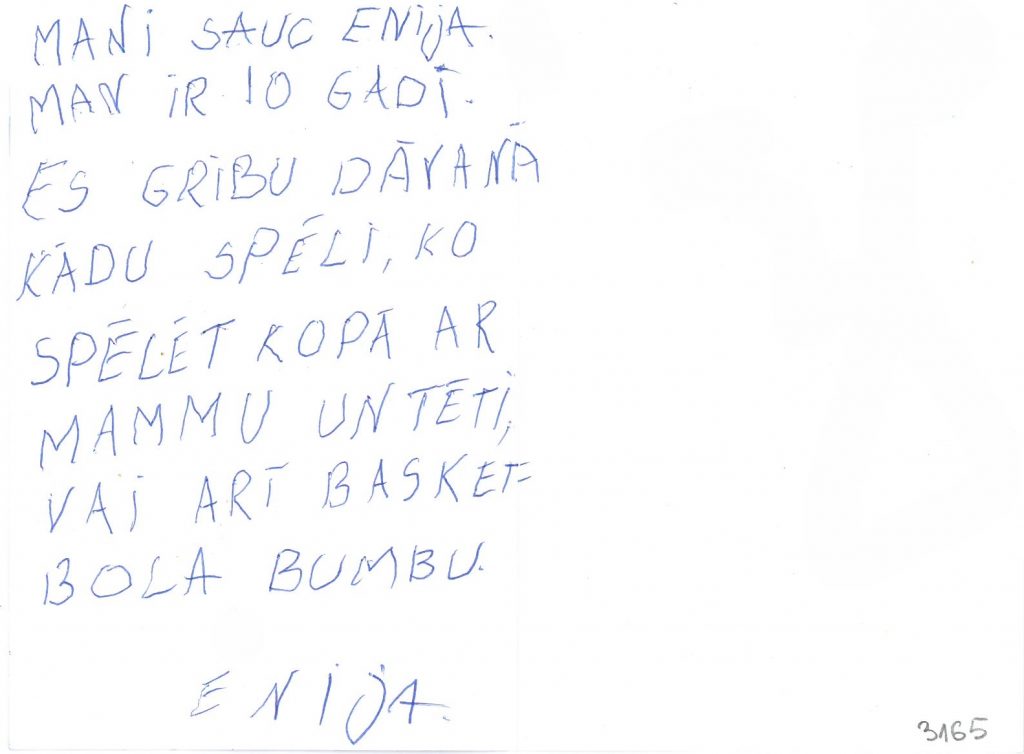 MANi SAUC ENijA.
MAN iR 10 GADĪ.
ES GRiBU DĀVANĀ
KĀDU SPĒLi, KO
SPĒLĒT KOPĀ AR
MAMMU UN TĒTi,
VAi ARĪ BASKET=
BOLA BUMBU.
ENijA.
3165